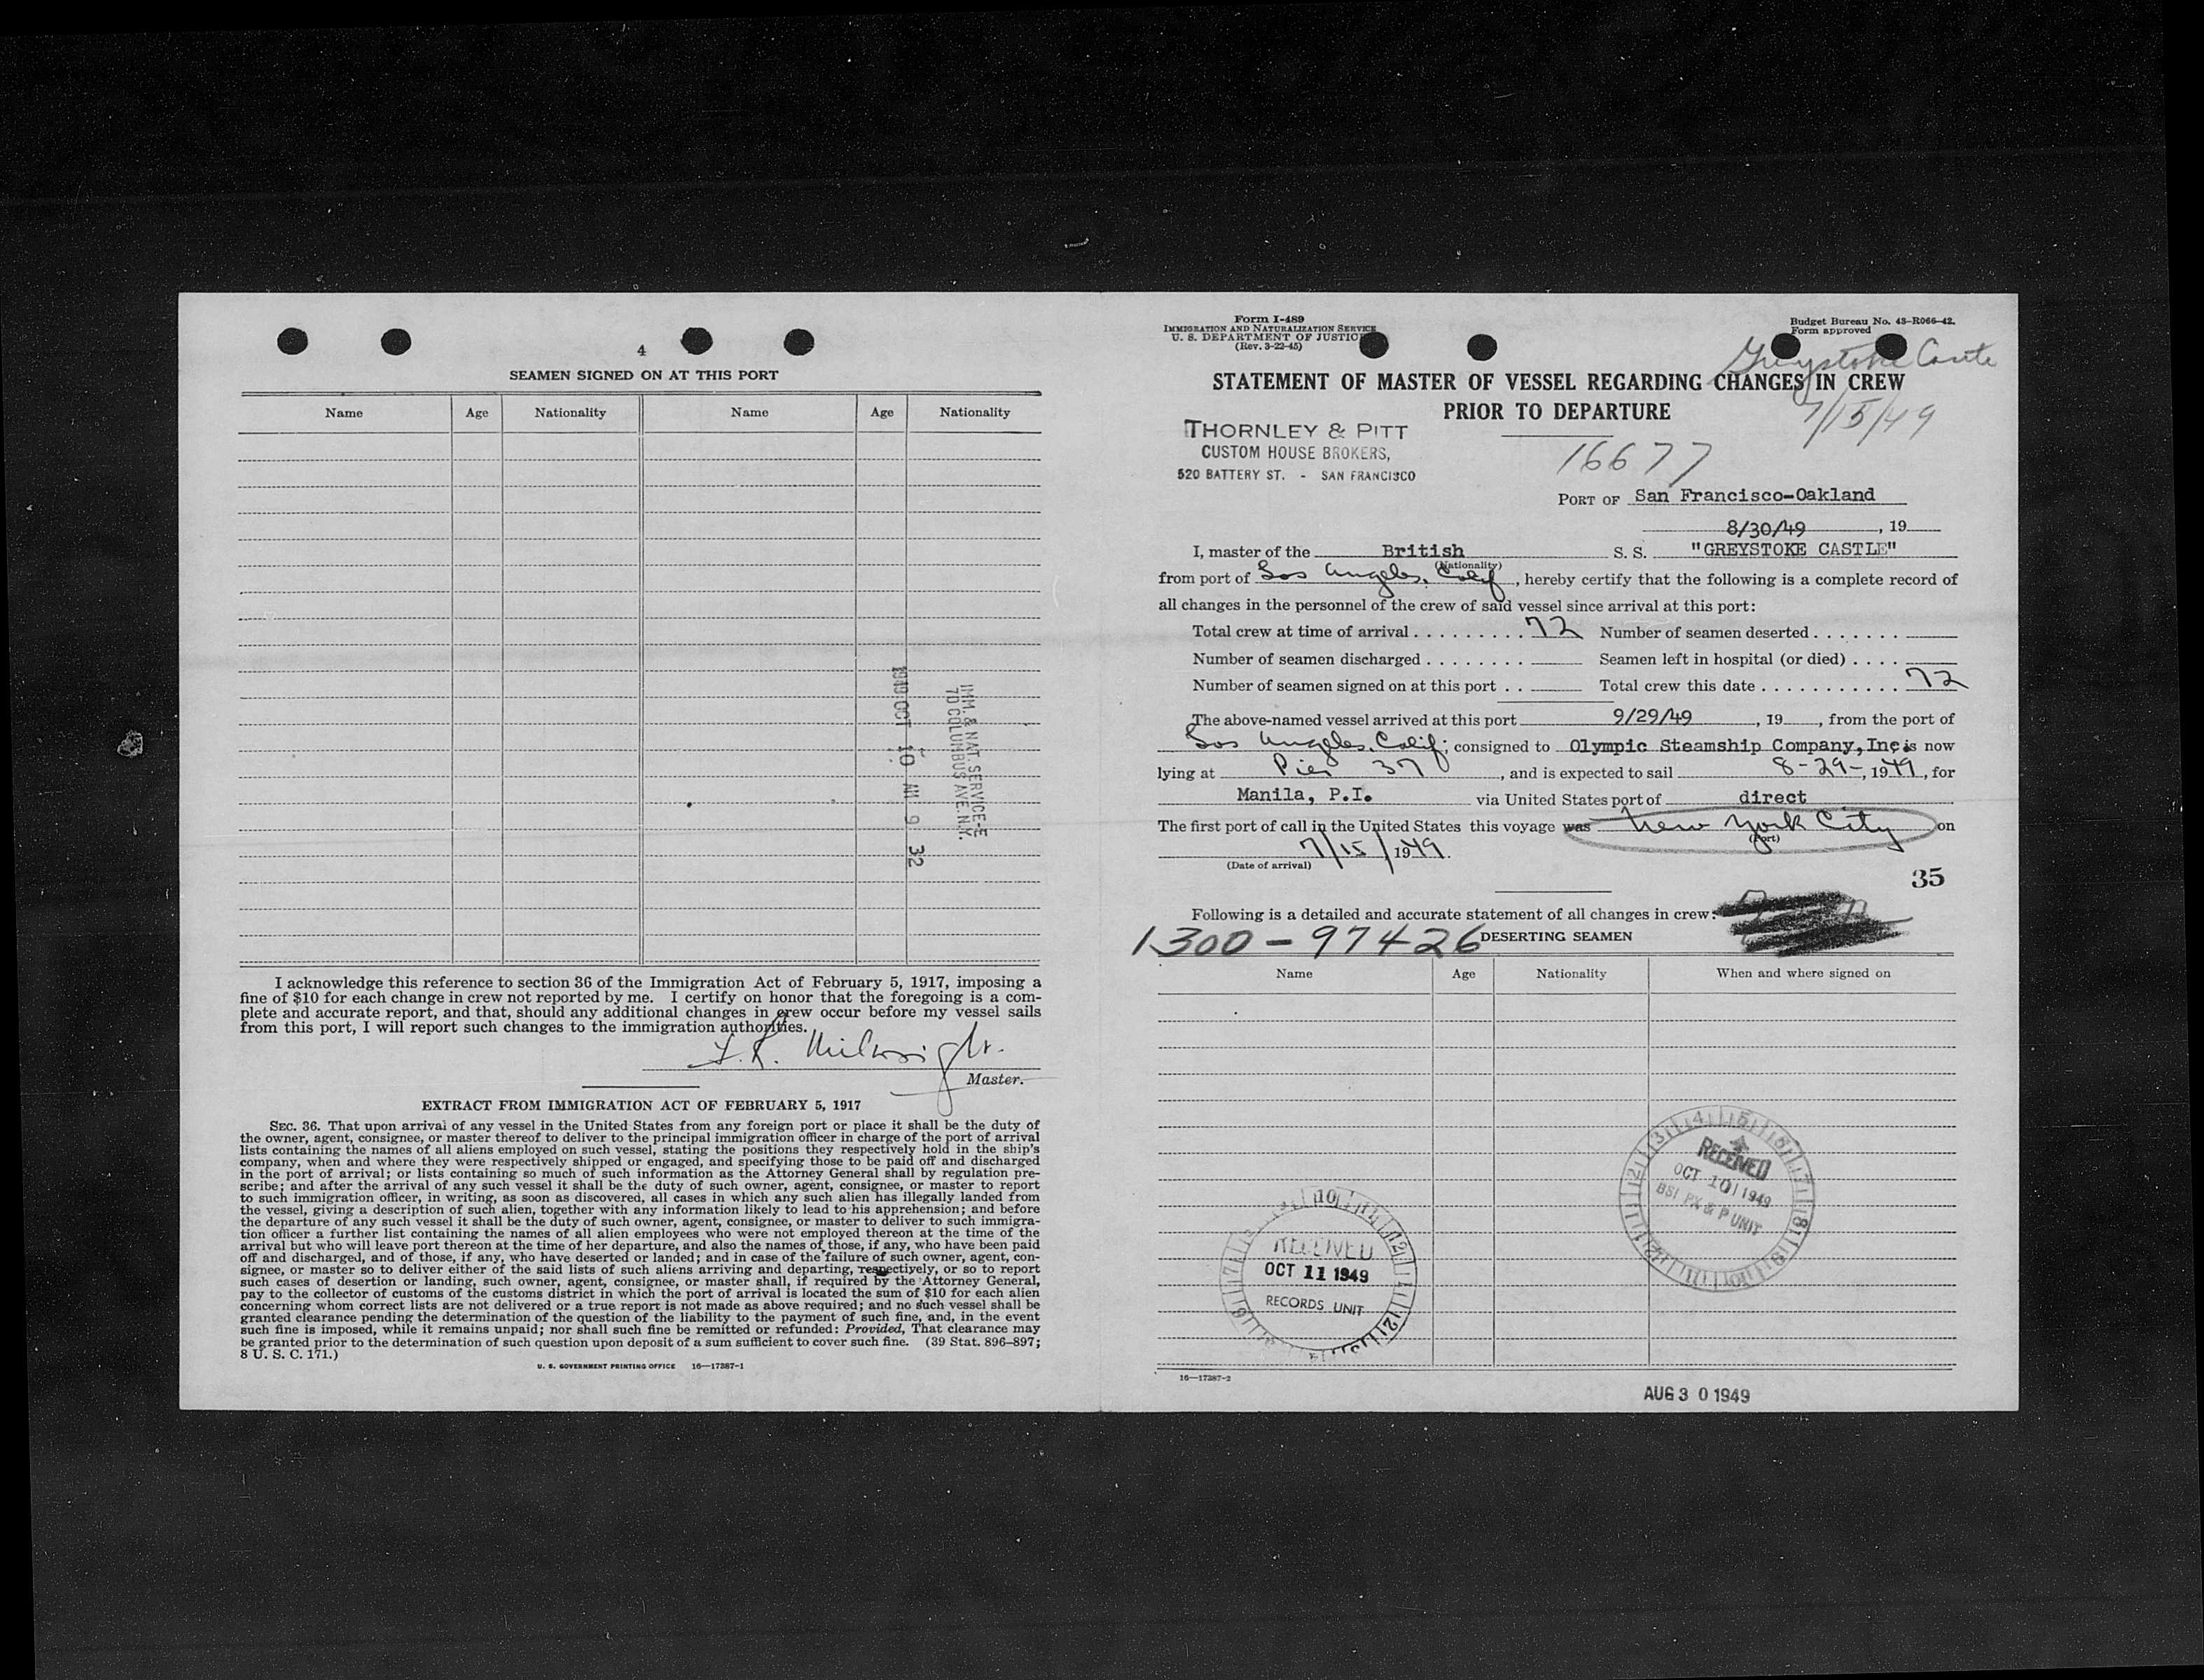 4
SEAMEN SIGNED ON AT THIS PORT
Name Age Nationality Name Age Nationality
IMM. & NAT. SERVICE-E
70 COLUMBUS AVE. N.Y.
1949 OCT 10 AM 9 32
I acknowledge this reference to section 36 of the Immigration Act of February 5, 1917, imposing a
fine of $10 for each change in crew not reported by me. I certify on honor that the foregoing is a com-
plete and accurate report, and that, should any additional changes in crew occur before my vessel sails
from this port, I will report such changes to the immigration authorities.
Master.
EXTRACT FROM IMMIGRATION ACT OF FEBRUARY 5, 1917
SEC. 36. That upon arrival of any vessel in the United States from any foreign port or place it shall be the duty of
the owner, agent, consignee, or master thereof to deliver to the principal immigration officer in charge of the port of arrival
lists containing the names of all aliens employed on such vessel, stating the positions they respectively hold in the ship's
company, when and where they were respectively shipped or engaged, and specifying those to be paid off and discharged
in the port of arrival; or lists containing so much of such information as the Attorney General shall by regulation pre-
scribe; and after the arrival of any such vessel it shall be the duty of such owner, agent, consignee, or master to report
to such immigration officer, in writing, as soon as discovered, all cases in which any such alien has illegally landed from
the vessel, giving a description of such alien, together with any information likely to lead to his apprehension; and before
the departure of any such vessel it shall be the duty of such owner, agent, consignee, or master to deliver to such immigra-
tion officer a further list containing the names of all alien employees who were not employed thereon at the time of the
arrival but who will leave port thereon at the time of her departure, and also the names of those, if any, who have been paid
off and discharged, and of those, if any, who have deserted or landed; and in case of the failure of such owner, agent, con-
signee, or master so to deliver either of the said lists of such aliens arriving and departing, respectively, or so to report
such cases of desertion or landing, such owner, agent, consignee, or master shall, if required by the Attorney General,
pay to the collector of customs of the customs district in which the port of arrival is located the sum of $10 for each alien
concerning whom correct lists are not delivered or a true report is not made as above required; and no such vessel shall be
granted clearance pending the determination of the question of the liability to the payment of such fine, and, in the event
such fine is imposed, while it remains unpaid; nor shall such fine be remitted or refunded: Provided, That clearance may
be granted prior to the determination of such question upon deposit of a sum sufficient to cover such fine. (39 Stat. 896-897;
8 U. S. C. 171.)
U. S. GOVERNMENT PRINTING OFFICE 16—17387-1
Form I-489
IMMIGRATION AND NATURALIZATION SERVICE
U. S. DEPARTMENT OF JUSTIC
(Rev. 3-22-45)
Budget Bureau No. 43-R066-42.
Form approved
Greystoke Castle
7/15/49
STATEMENT OF MASTER OF VESSEL REGARDING CHANGES IN CREW
PRIOR TO DEPARTURE
THORNLEY & PITT
CUSTOM HOUSE BROKERS,
520 BATTERY ST. - SAN FRANCISCO
16677
PORT OF San Francisco-Oakland
8/30/49, 19
I, master of the British S. S. "GREYSTOKE CASTLE"
(Nationality)
from port of Los Angeles, Calif, hereby certify that the following is a complete record of
all changes in the personnel of the crew of said vessel since arrival at this port:
Total crew at time of arrival . . . . . . . . . 72 Number of seamen deserted . . . . . . .
Number of seamen discharged . . . . . . . . Seamen left in hospital (or died) . . . .
Number of seamen signed on at this port . . Total crew this date . . . . . . . . . . . 72
The above-named vessel arrived at this port 9/29/49, 19, from the port of
Los Angeles, Calif; consigned to Olympic Steamship Company, Inc. is now
lying at Pier 37, and is expected to sail 8-29-, 1949, for
Manila, P.I. via United States port of direct
The first port of call in the United States this voyage was New York City on
(Port)
7/15/1949.
(Date of arrival)
35
Following is a detailed and accurate statement of all changes in crew:
1300-97426 DESERTING SEAMEN
Name Age Nationality When and where signed on
RECEIVED
OCT 10 1949
BSI PX & P UNIT
RECEIVED
OCT 11 1949
RECORDS UNIT
16—17387-2
AUG 30 1949